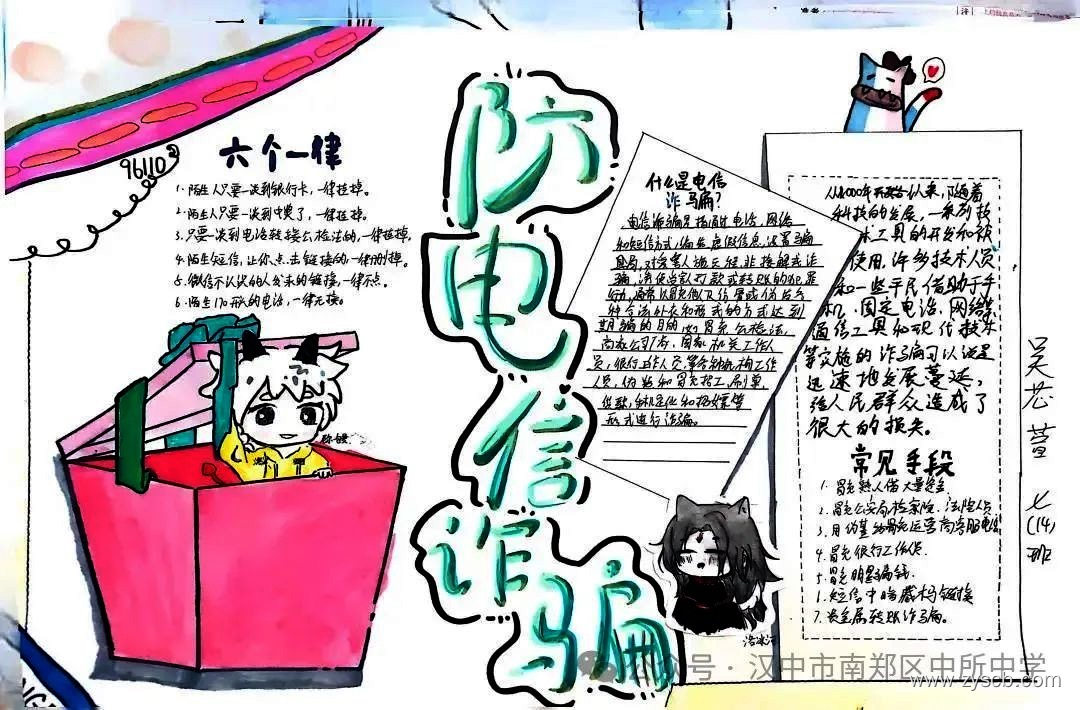 96110
六个一律
1. 陌生人只要一谈到银行卡，一律挂掉。
2. 陌生人只要一谈到中奖了，一律挂掉。
3. 只要一谈到电话转接公检法的，一律挂掉。
4. 陌生短信，让你点击链接的一律删掉。
5. 微信不认识的人发来的链接，一律不点。
6. 陌生170开头的电话，一律不接。
防电信诈骗
什么是电信
诈骗？
电信诈骗是指通过电话、网络
和短信方式，编造虚假信息，设置骗
局，对受害人实施远程、非接触式诈
骗，诱使受害人打款或转账的犯罪
行为，通常以冒充他人及仿冒或伪造各
种合法外衣和形式的方式达到
欺骗的目的，如冒充公检法，
商家公司厂家，国家机关工作人
员，银行工作人员，等各种机构工作
人员，伪造和冒充招工，刷单，
贷款，手机定位和招嫖等
形式进行诈骗。
从2000年开始以来，随着
科技的发展，一系列技
术工具的开发和被
使用，许多技术人员
和一些平民借助于手
机、固定电话、网络等
通信工具和现代技术
等实施的诈骗可以说是
迅速地发展蔓延，
给人民群众造成了
很大的损失。
常见手段
1. 冒充熟人借大量资金
2. 冒充公安局检察院、法院人员
3. 用伪基站冒充运营商客服电信
4. 冒充银行工作人员
5. 冒充明星骗钱
短信中暗藏木马链接
7. 贵金属转账诈骗。
吴芯萱 七(14)班
洛冰河
公众号·汉中市南郑区中所中学
www.zyscb.com